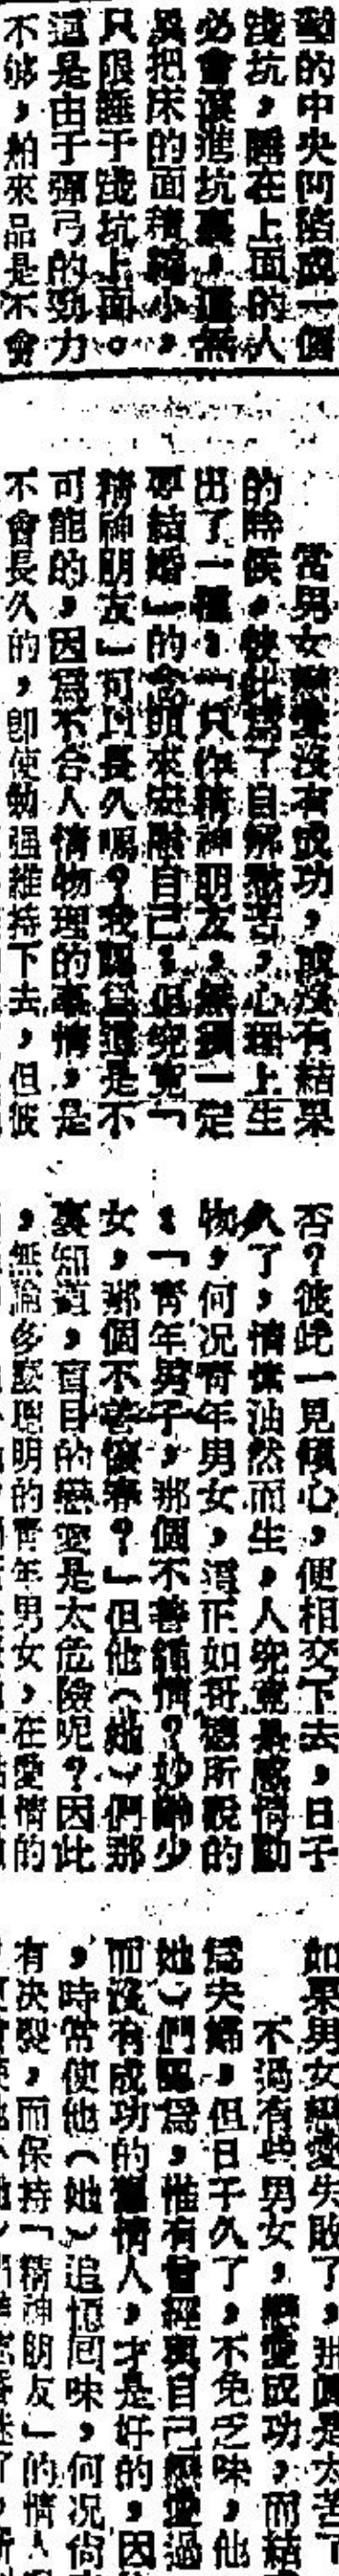 動的中央凹陷成一個
淺坑，睡在上面的人
必會滾進坑裏，這無
異把床的面積縮小，
只限睡于淺坑上面。
這是由于彈弓的勁力
不够，舶來品是不會
當男女戀愛沒有成功，或沒有結果
的時候，彼此爲了自解愁苦，心理上生
出了一種：「只作精神朋友，無須一定
要結婚」的念頭來安慰自己；但究竟「
精神朋友」可以長久嗎？我認爲這是不
可能的，因爲不合人情物理的事情，是
不會長久的，卽使勉强維持下去，但彼
否？彼此一見傾心，便相交下去，日子
久了，情愫油然而生，人究竟是感情動
物，何况青年男女，這正如哥德所說的
：「青年男子，那個不善鍾情？妙齡少
女，那個不善懷春？」但他（她）們那
裏知道，盲目的戀愛是太危險呢？因此
，無論多麽聰明的青年男女，在愛情的
如果男女戀愛失敗了，那眞是太苦了
不過有些男女，戀愛成功，而結
爲夫婦，但日子久了，不免乏味，他
她）們認爲，惟有曾經與自己戀愛過
而沒有成功的舊情人，才是好的，因
，時常使他（她）追憶回味，何况倘
有决裂，而保持「精神朋友」的情人